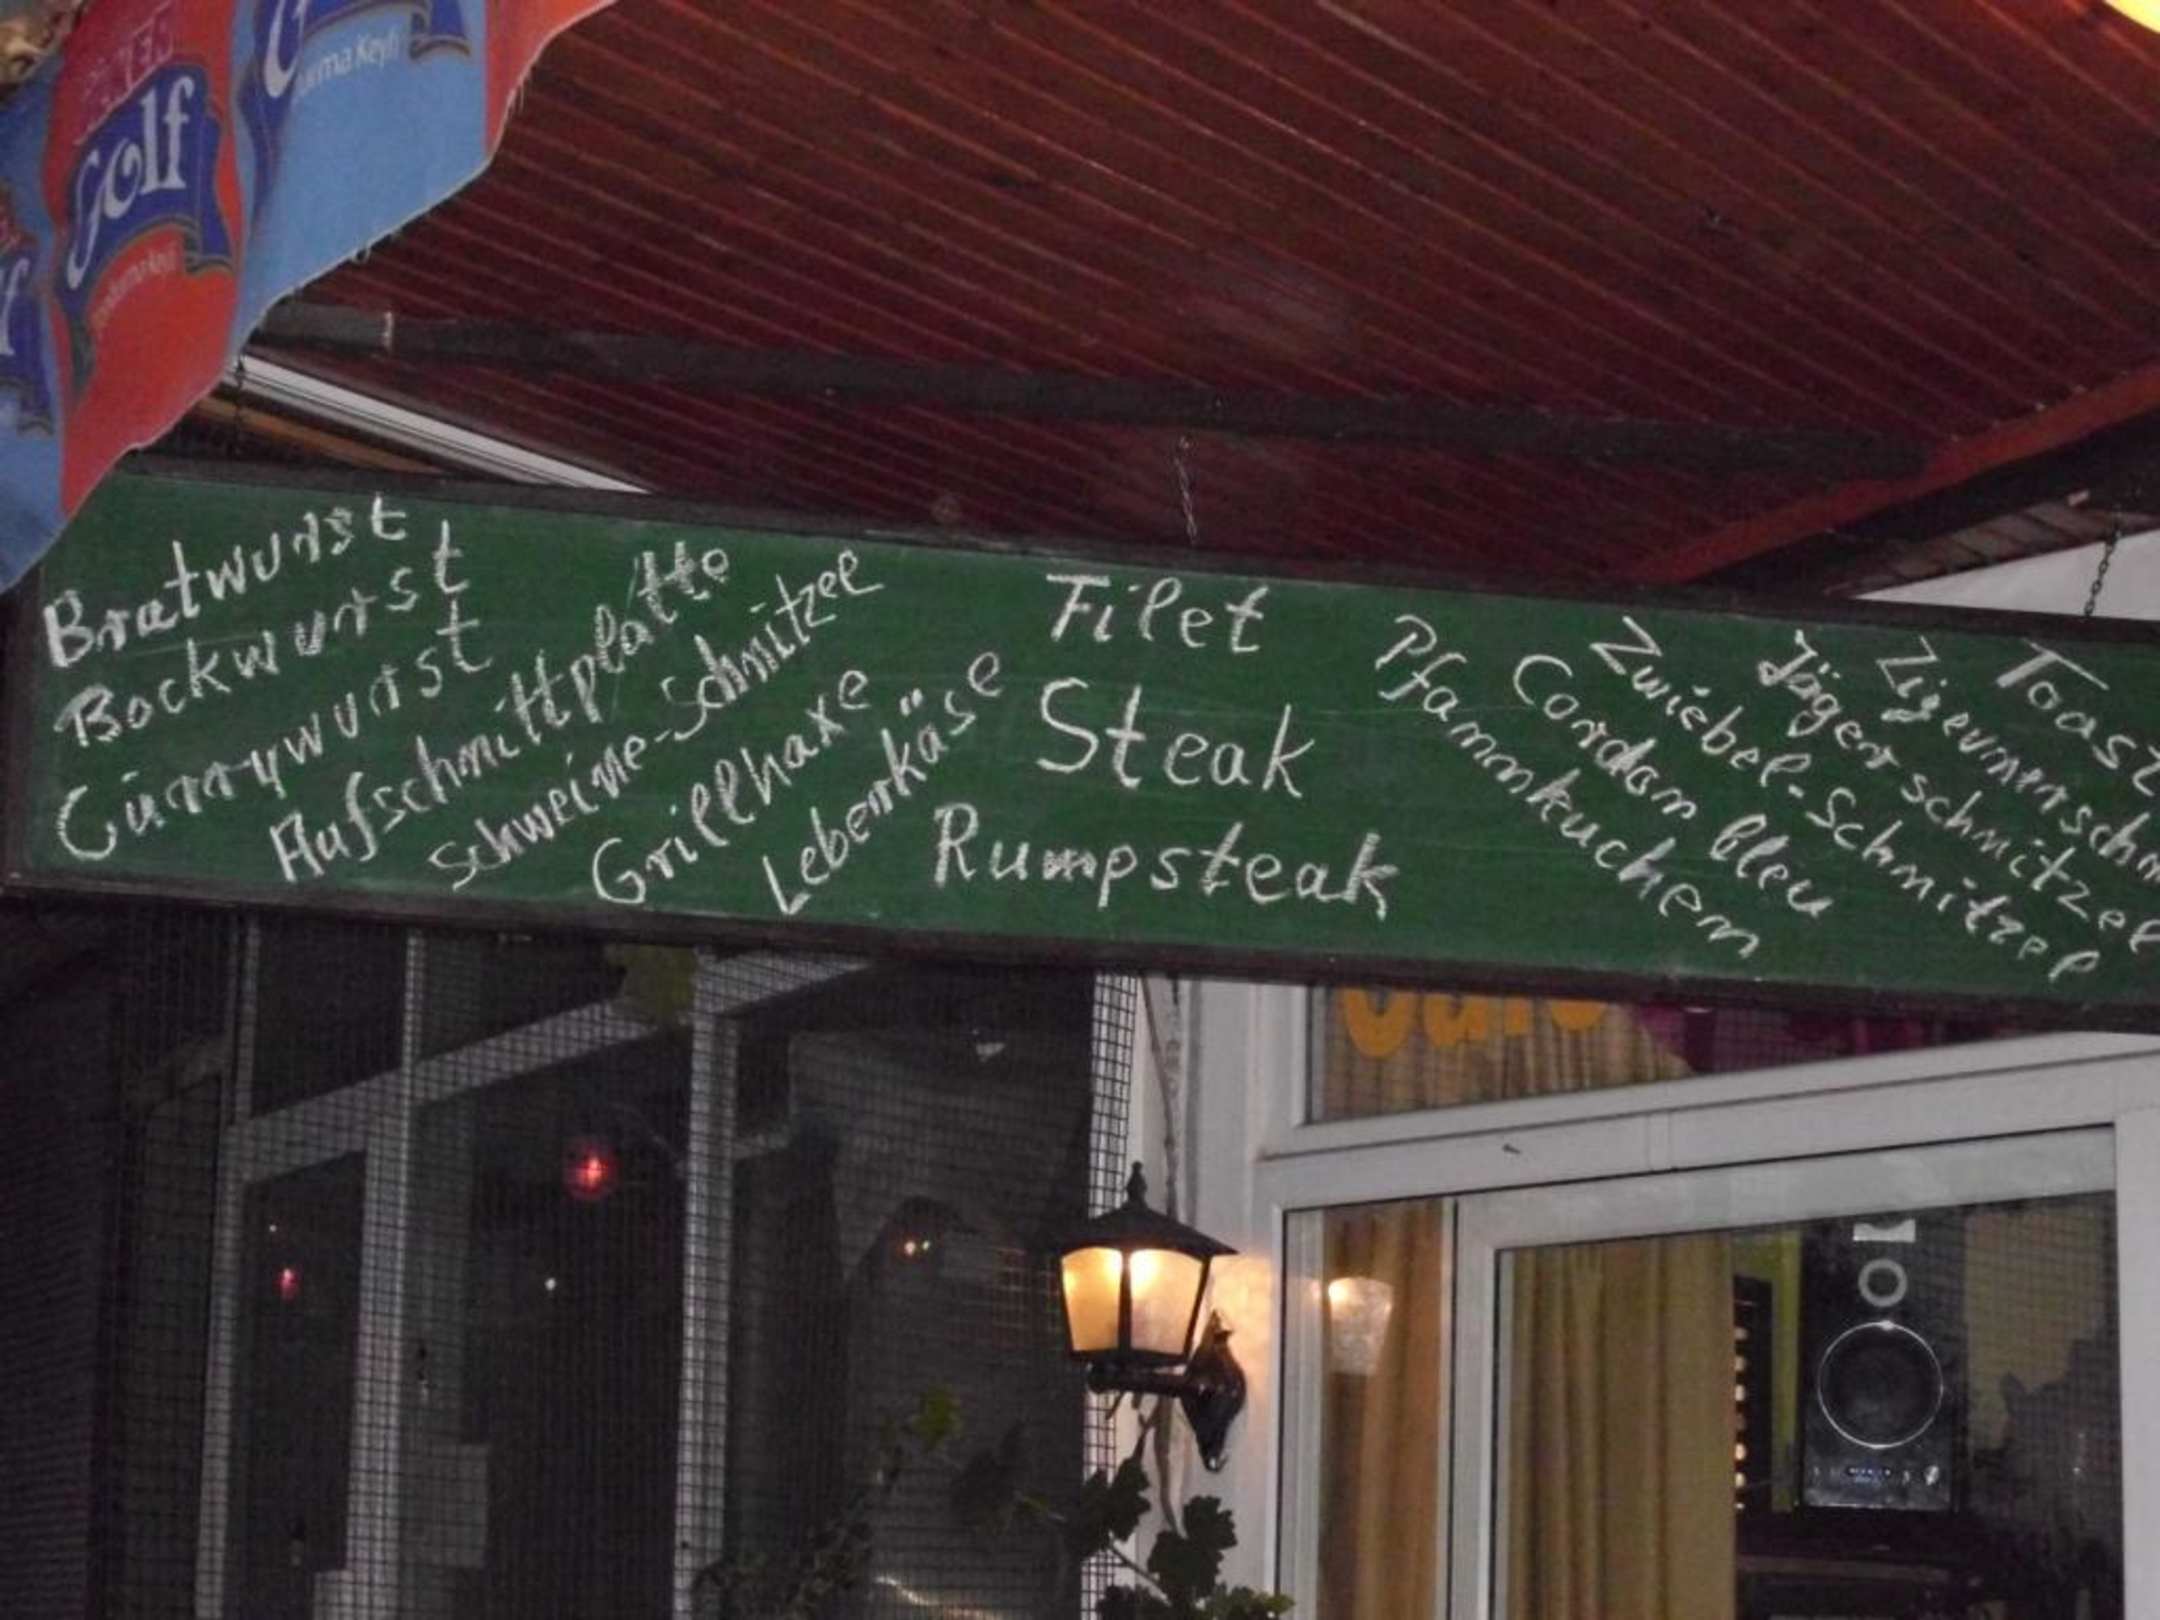 Golf
Bratwurst
Bockwurst
Cürrywurst
Aufschnittplatte
Schweine-Schnitzel
Grillhaxe
Leberkäse
Filet
Steak
Rumpsteak
Pfannkuchen
Cordon bleu
Zwiebel-Schnitzel
Jägerschnitzel
Zigeunerschn
Toast